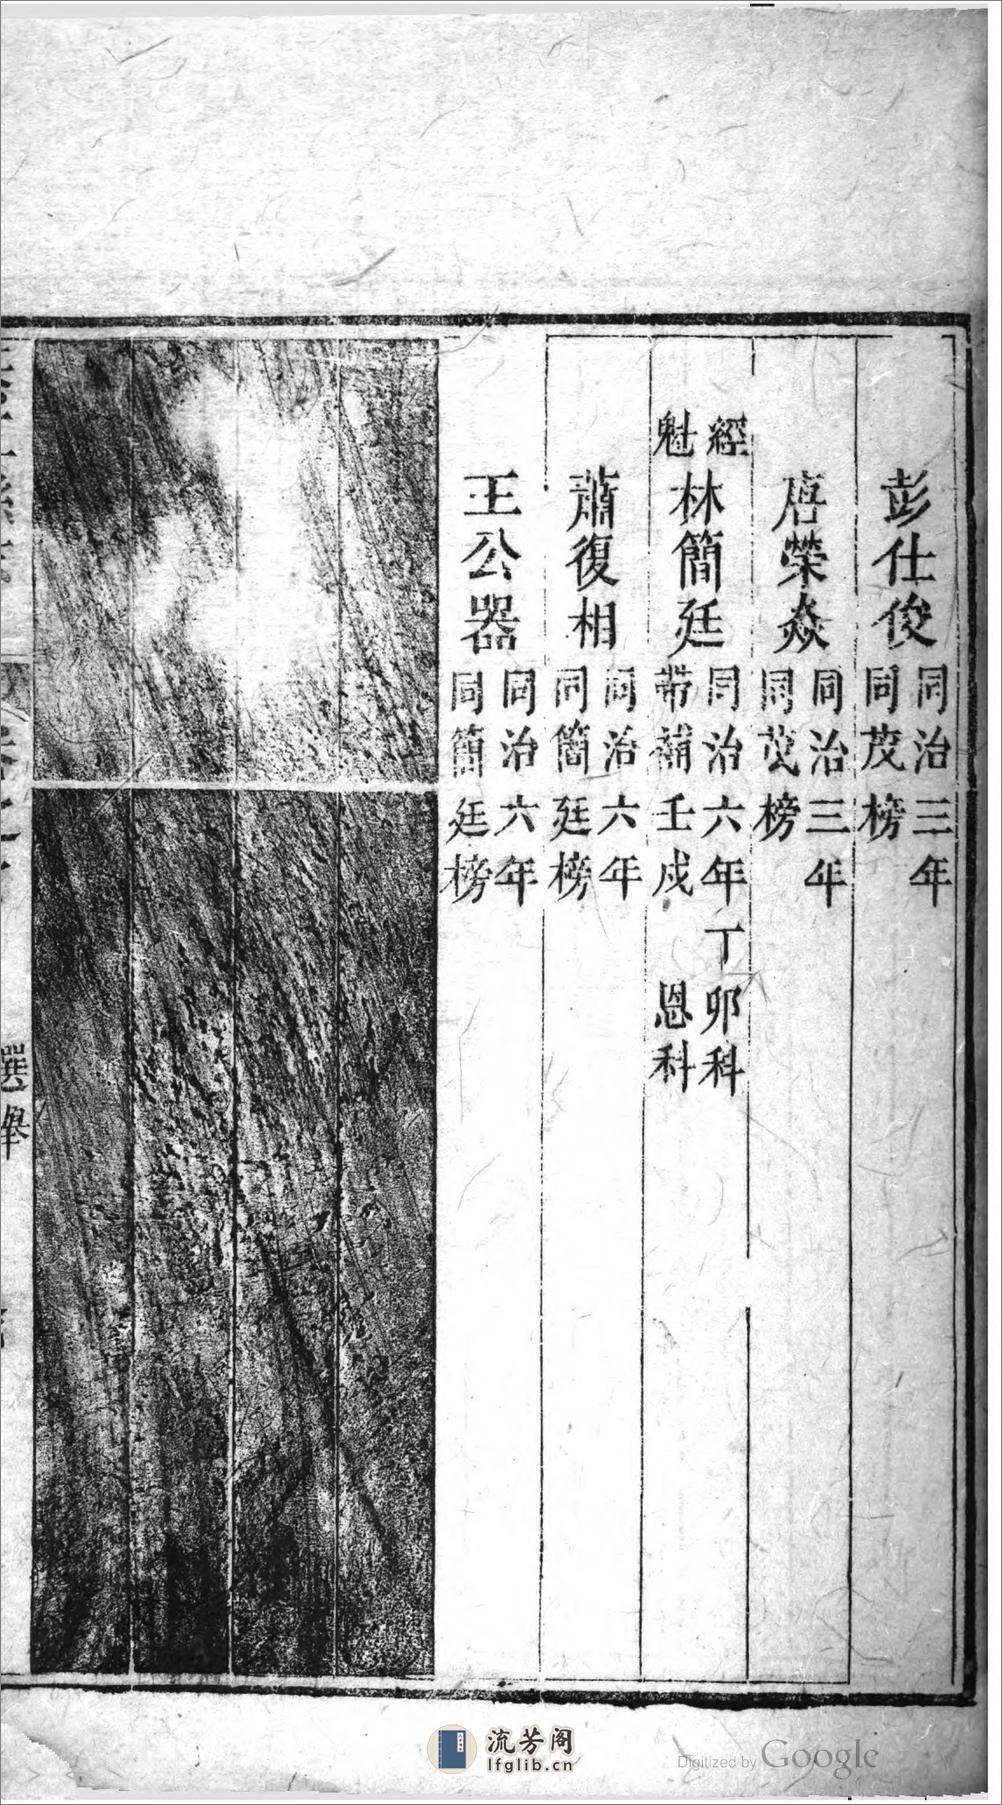 彭仕俊 同治三年 同茂榜
唐榮焱 同治三年 同茂榜
經魁 林簡廷 同治六年丁卯科 帶補壬戌 恩科
蕭復相 同治六年 同簡廷榜
王公器 同治六年 同簡廷榜
選舉
流芳阁
lfglib.cn
Digitized by Google